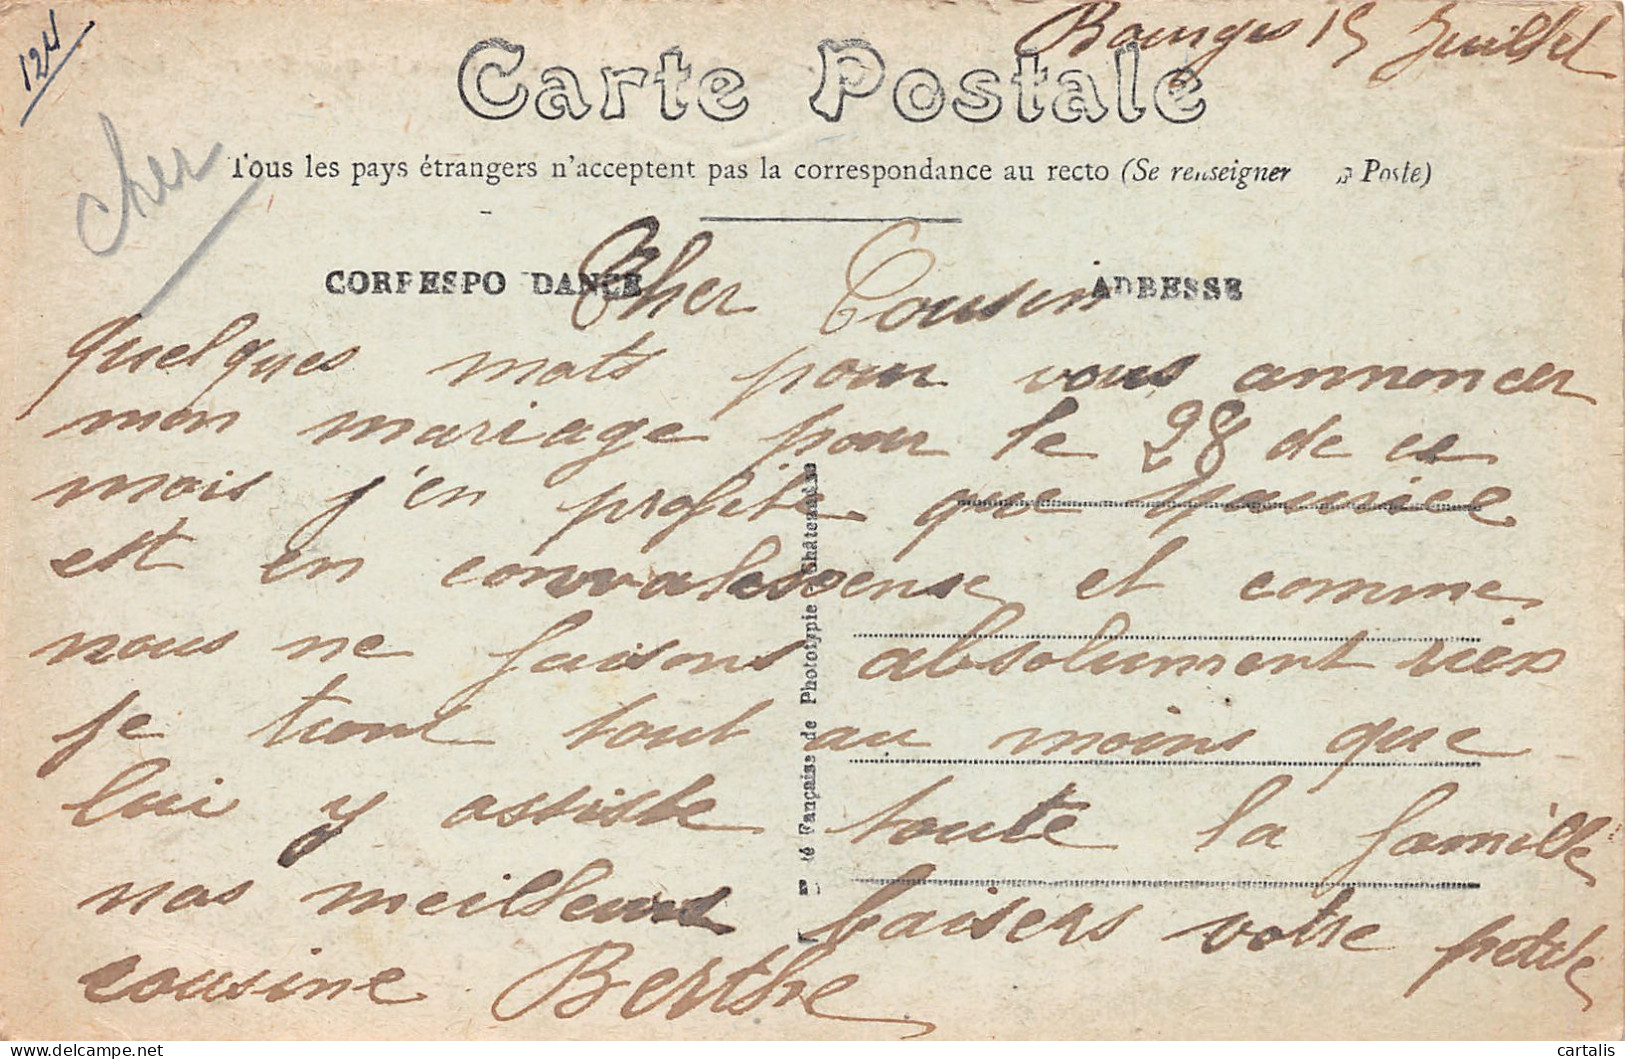 124
Bourges 15 Juillet
Carte Postale
cher
Tous les pays étrangers n'acceptent pas la correspondance au recto (Se renseigner Poste)
CORRESPONDANCE
ADRESSE
Cher Cousin
quelques mots pour vous annoncer
mon mariage pour le 28 de ce
mois j'en profite que Maurice
est en convalessense et comme
nous ne faisons absolument rien
je tient tout au moins que
lui y assiste toute la famille
nos meilleurs baisers votre petite
cousine Berthe
té Française de Phototypie Châteaudun
cartalis